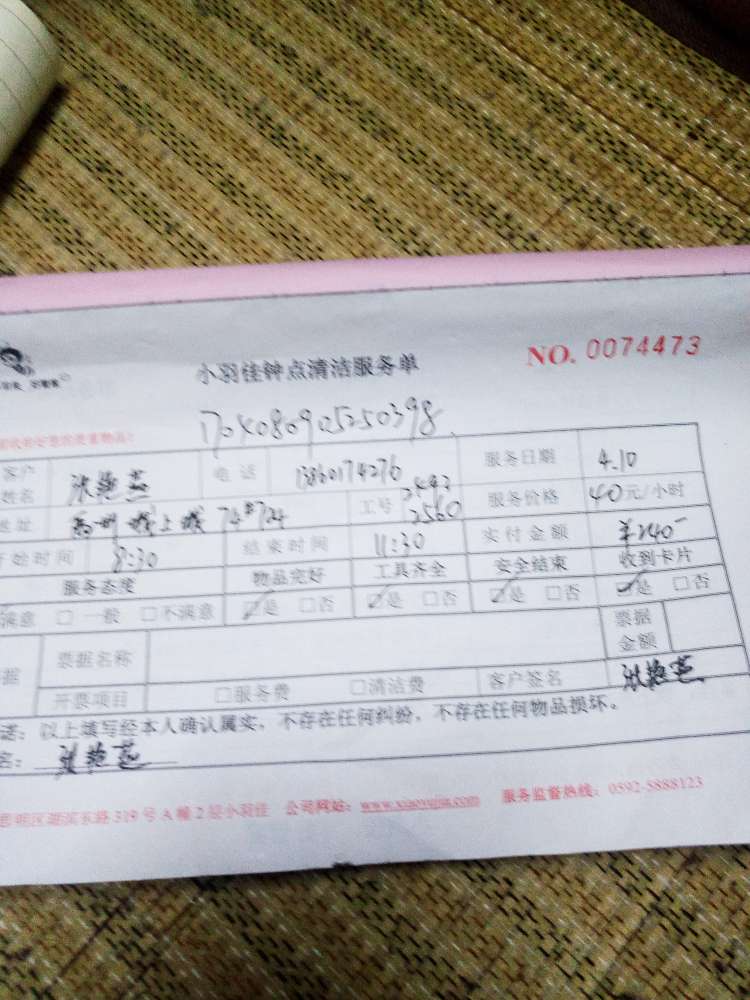 小羽佳钟点清洁服务单 NO. 0074473
1704080905250398
客户姓名 张艳燕 电话 13860174276 服务日期 4.10
地址 禹州城上城 74#704 工号 2493 2560 服务价格 40元/小时
开始时间 8:30 结束时间 11:30 实付金额 ¥240-
服务态度 物品完好 工具齐全 安全结束 收到卡片
满意 □ 一般 □不满意 ☑是 □否 ☑是 □否 ☑是 □否 ☑是 □否
据 票据名称 票据金额
开票项目 □服务费 □清洁费 客户签名 张艳燕
诺：以上填写经本人确认属实，不存在任何纠纷，不存在任何物品损坏。
名：张艳燕
思明区湖滨东路319号A幢2层小羽佳 公司网站：www.xiaoyujia.com 服务监督热线：0592-5888123